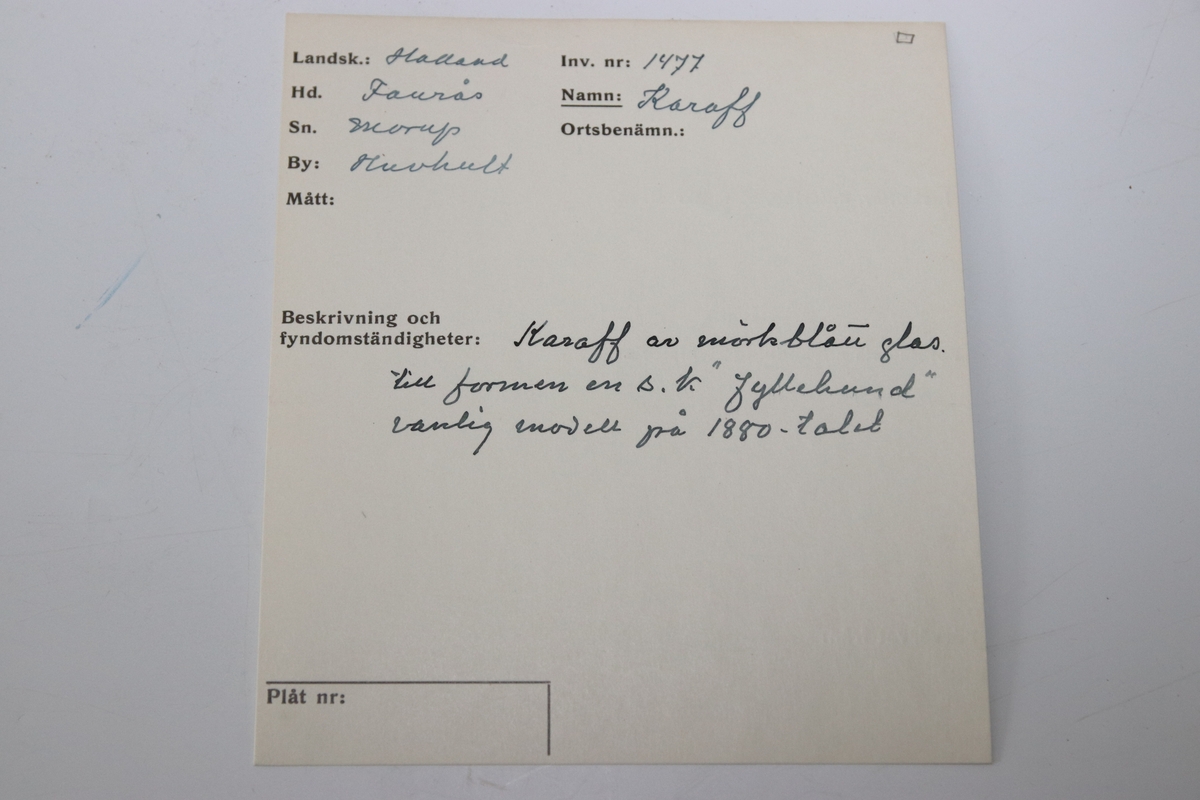 Landsk.: Halland
Hd. Faurås
Sn. Morup
By: Huvhult
Mått:
Inv. nr: 1477
Namn: Karaff
Ortsbenämn.:
Beskrivning och
fyndomständigheter: Karaff av mörkblått glas.
till formen en s.k "fyllehund"
vanlig modell på 1880-talet
Plåt nr: